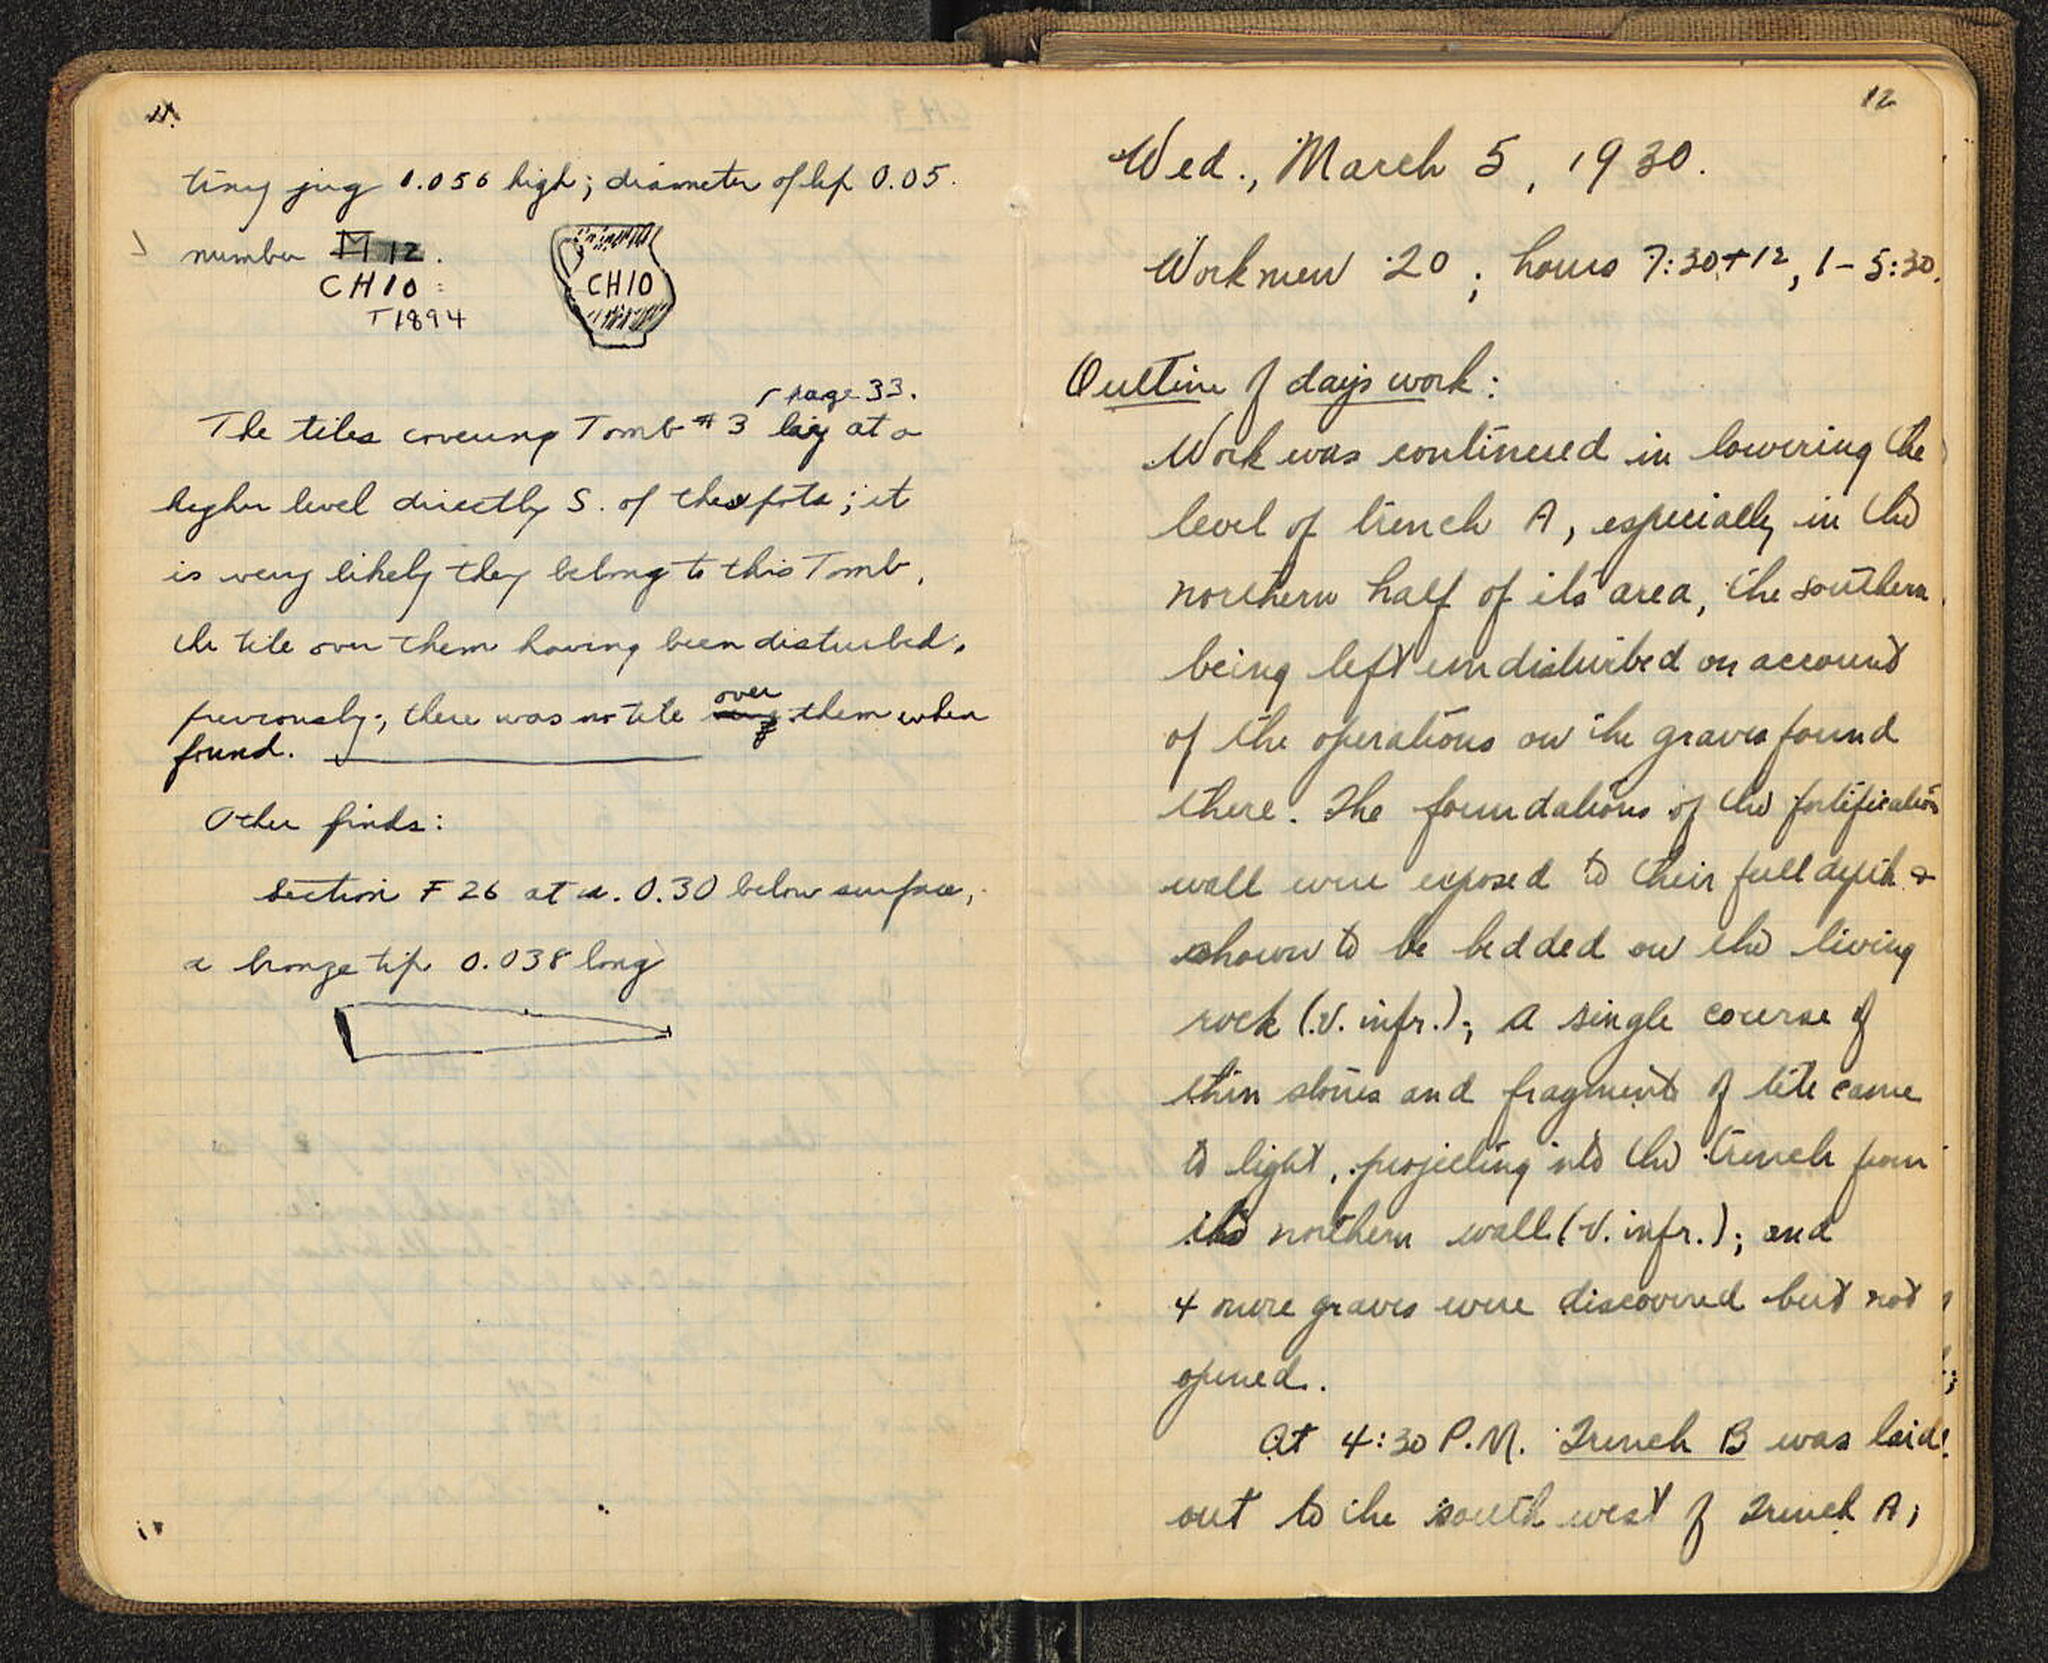 11.
tiny jug 0.056 high; diameter of lip 0.05.
number M 12.
CH10
T1894
CH10
page 33.
The tiles covering Tomb #3 lay at a
higher level directly S. of these pots; it
is very likely they belong to this Tomb,
the tile over them having been disturbed,
previously; there was no tile over them when
found.
Other finds:
Section F 26 at a. 0.30 below surface,
a bronze tip 0.038 long
12
Wed., March 5, 1930.
Workmen 20; hours 7:30+12, 1-5:30.
Outline of day's work:
Work was continued in lowering the
level of trench A, especially in the
northern half of its area, the southern
being left undisturbed on account
of the operations on the graves found
there. The foundations of the fortification
wall were exposed to their full depth &
shown to be bedded on the living
rock (v. infr.); a single course of
thin stones and fragments of tile came
to light, projecting into the trench from
the northern wall (v. infr.); and
4 more graves were discovered but not
opened.
At 4:30 P.M. Trench B was laid
out to the south west of Trench A;